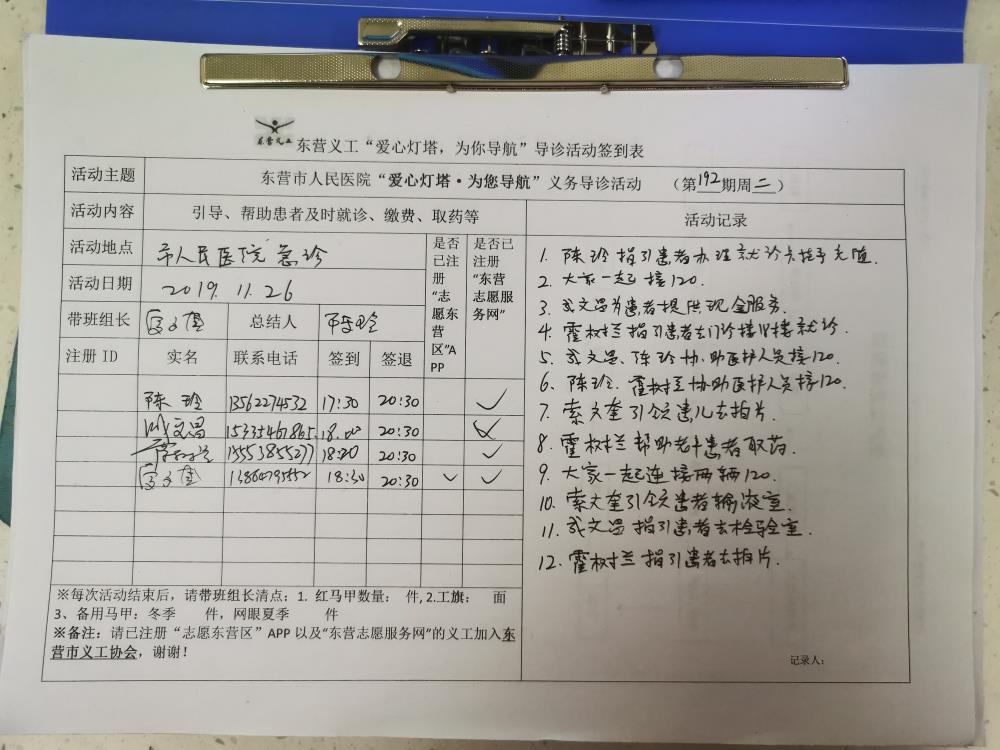 东营义工
东营义工“爱心灯塔，为你导航”导诊活动签到表
活动主题 东营市人民医院“爱心灯塔·为您导航”义务导诊活动 （第192期周二）
活动内容 引导、帮助患者及时就诊、缴费、取药等
活动地点 市人民医院急诊
活动日期 2019.11.26
带班组长 总结人 陈玲
是否已注册“志愿东营区”APP
是否已注册“东营志愿服务网”
注册ID 实名 联系电话 签到 签退
陈玲 13562274532 17:30 20:30 ✓
武文昌 15335461865 18:00 20:30 ✓
15553855277 18:20 20:30 ✓
13864795552 18:30 20:30 ✓ ✓
※每次活动结束后，请带班组长清点：1. 红马甲数量： 件, 2.工旗： 面
3、备用马甲：冬季 件，网眼夏季 件
※备注：请已注册“志愿东营区”APP 以及“东营志愿服务网”的义工加入东
营市义工协会，谢谢！
活动记录
1. 陈玲指引患者办理就诊卡并充值.
2. 大家一起接120.
3. 武文昌为患者提供现金服务.
4. 霍树兰指引患者去门诊楼旧楼就诊.
5. 武文昌、陈玲协助医护人员接120.
6. 陈玲、霍树兰协助医护人员接120.
7. 索文奎引领患儿去拍片.
8. 霍树兰帮助老年患者取药.
9. 大家一起连接两辆120.
10. 索文奎引领患者输液室.
11. 武文昌指引患者去检验室.
12. 霍树兰指引患者去拍片.
记录人：